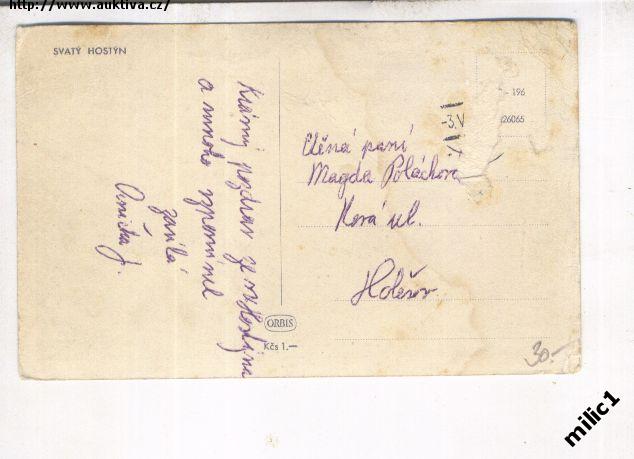 http://www.auktiva.cz/
SVATÝ HOSTÝN
Krásný pozdrav ze sv. Hostýna
a mnoho vzpomínek
zasílá
Anička J.
- 196
26065
-3.V
Magda Poláchova
Nová ul.
Holešov.
ORBIS
Kčs 1.—
30.-
milic1